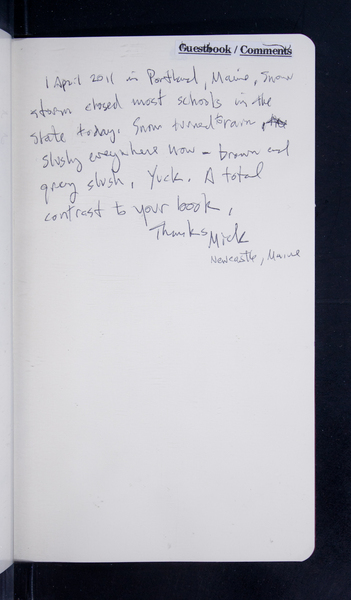 Guestbook / Comments
1 April 2011 in Portland, Maine, snow
storm closed most schools in the
state today. Snow turned to rain,
slushy everywhere now - brown and
grey slush, Yuck. A total
contrast to your book,
Thanks Mick
Newcastle, Maine